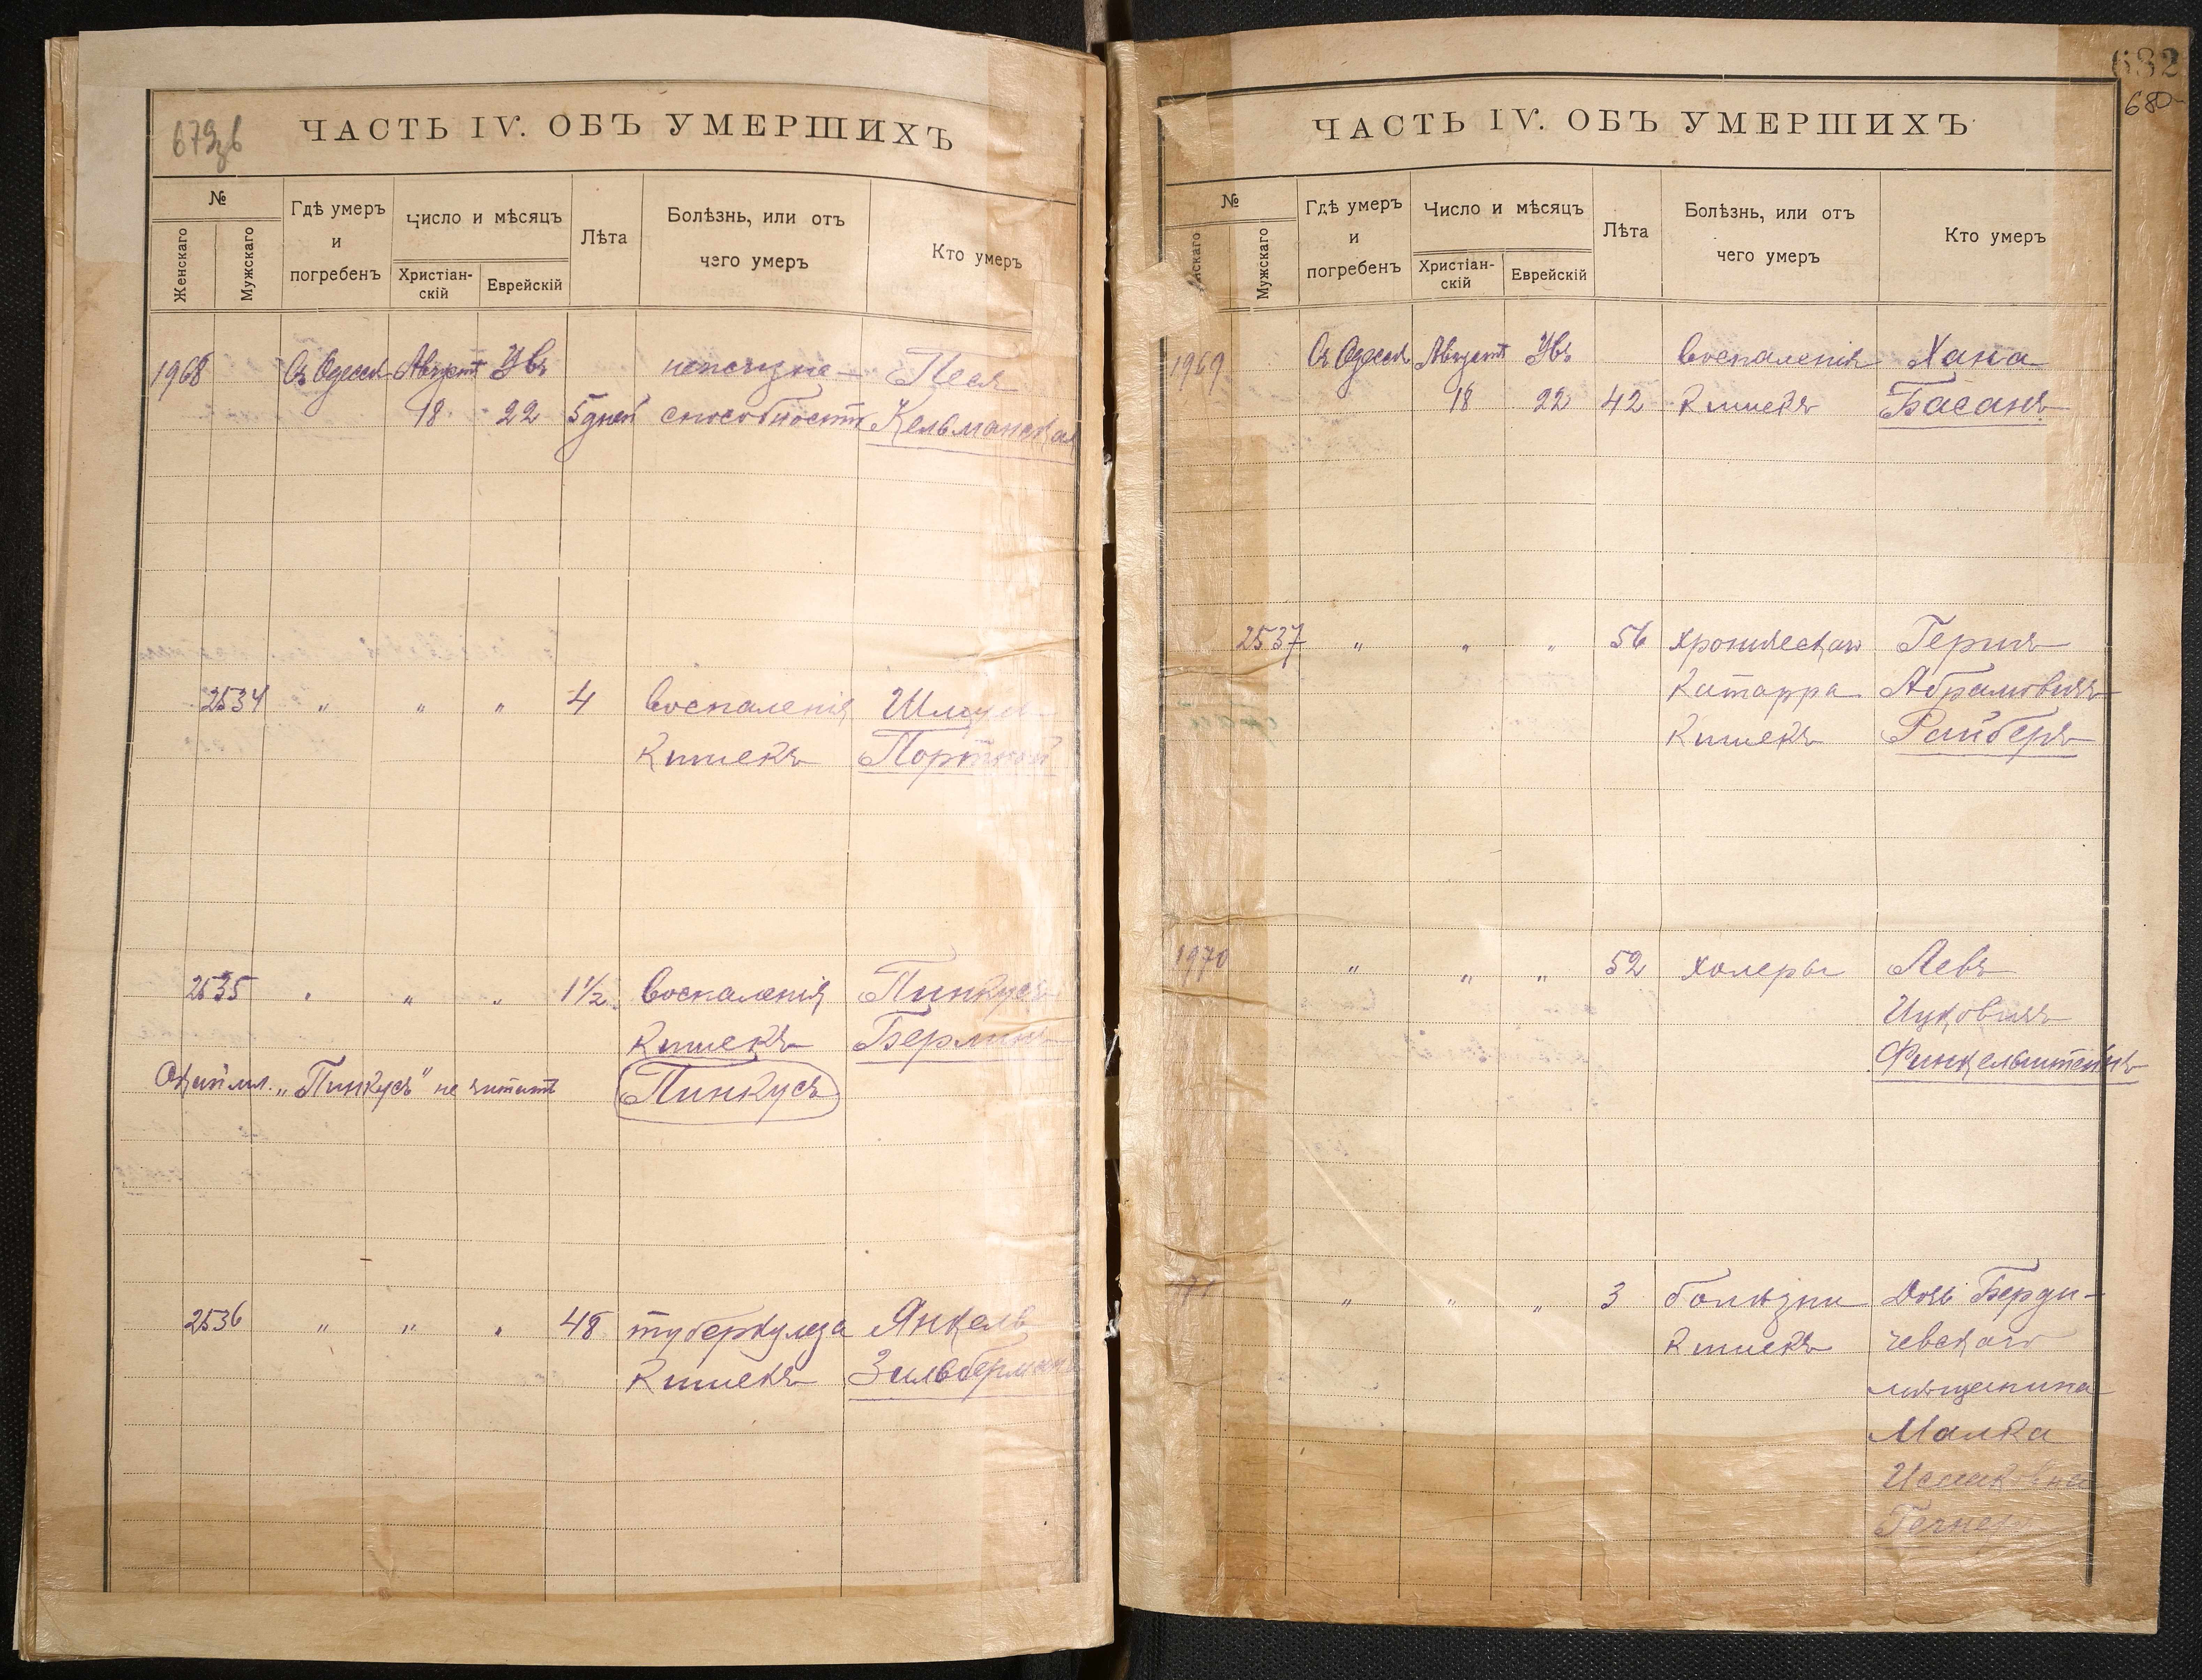 679 зв
ЧАСТЬ IV. ОБЪ УМЕРШИХЪ
№
Женскаго
Мужскаго
Гдѣ умеръ и погребенъ
Число и мѣсяцъ
Христіан-скій
Еврейскій
Лѣта
Болѣзнь, или отъ чего умеръ
Кто умеръ
1968 Въ Одессѣ Августъ Увъ неъ жизне- Песя
18 22 5 дней способности Кельманская
2534 " " " 4 Воспаленія Шмуль
кишекъ Портной
2535 " " " 1½ Воспаленія Пинкусъ
кишекъ Берлинъ
"Пинкусъ" не читать Пинкусъ
2536 " " " 48 туберкулеза Янкель
кишекъ Зильберманъ
632
680
ЧАСТЬ IV. ОБЪ УМЕРШИХЪ
№
нскаго
Мужскаго
Гдѣ умеръ и погребенъ
Число и мѣсяцъ
Христіан-скій
Еврейскій
Лѣта
Болѣзнь, или отъ чего умеръ
Кто умеръ
1969 Въ Одессѣ Августъ Увъ Воспаленія Хана
18 22 42 кишекъ Басанъ
2537 " " " 56 хроническаго Гершъ
катарра Абрамовичъ
кишекъ Райберъ
1970 " " " 52 холеры Левъ
Ицковичъ
Финкельштейнъ
971 " " " 3 болѣзни Дочь Берди-
кишекъ чевскаго
мѣщанина
Малка
Исааковна